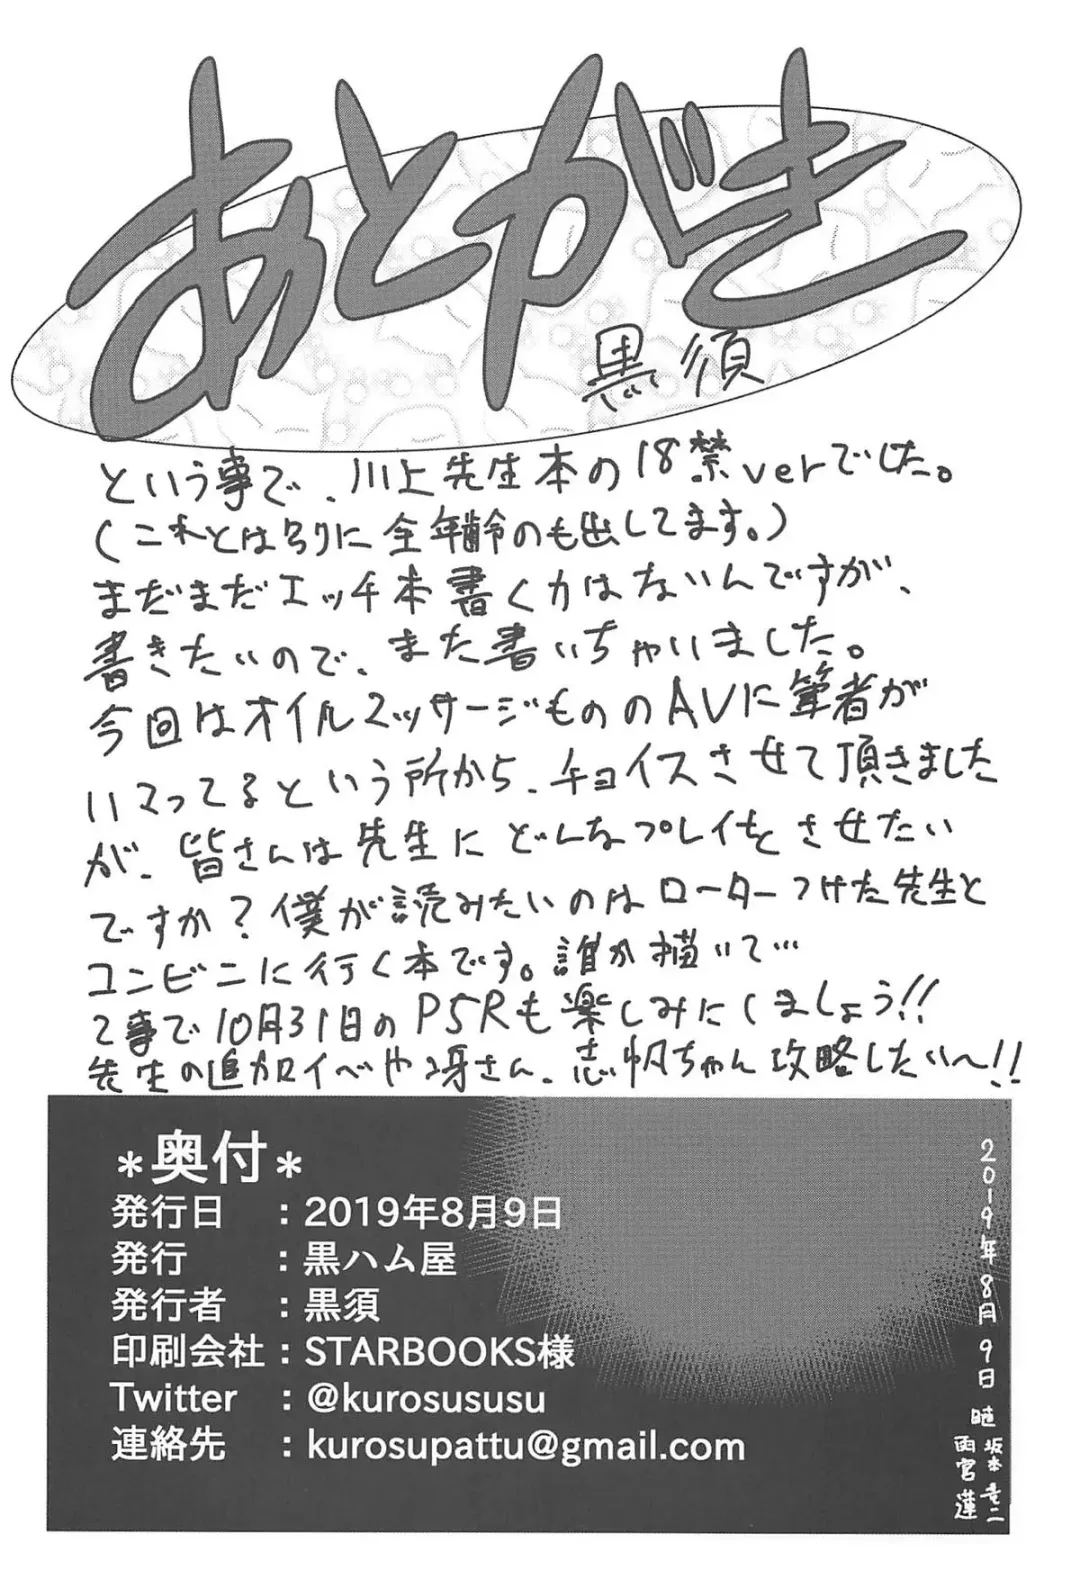 あとがき
黒須
という事で、川上先生本の18禁verでした。
(これとは別に全年齢のも出してます。)
まだまだエッチ本書く力はないんですが、
書きたいので、また書いちゃいました。
今回はオイルマッサージもののAVに筆者が
ハマってるという所から、チョイスさせて頂きました
が、皆さんは先生にどんなプレイをさせたい
ですか?僕が読みたいのはローターつけた先生と
コンビニに行く本です。誰か描いて…
て事で10月31日のP5Rも楽しみにしましょう!!
先生の追加イベや冴さん、志帆ちゃん攻略したい〜!!
*奥付*
発行日 :2019年8月9日
発行 :黒ハム屋
発行者 :黒須
印刷会社:STARBOOKS様
Twitter :@kurosususu
連絡先 :kurosupattu@gmail.com
2019年8月9日
坂本竜二
雨宮蓮